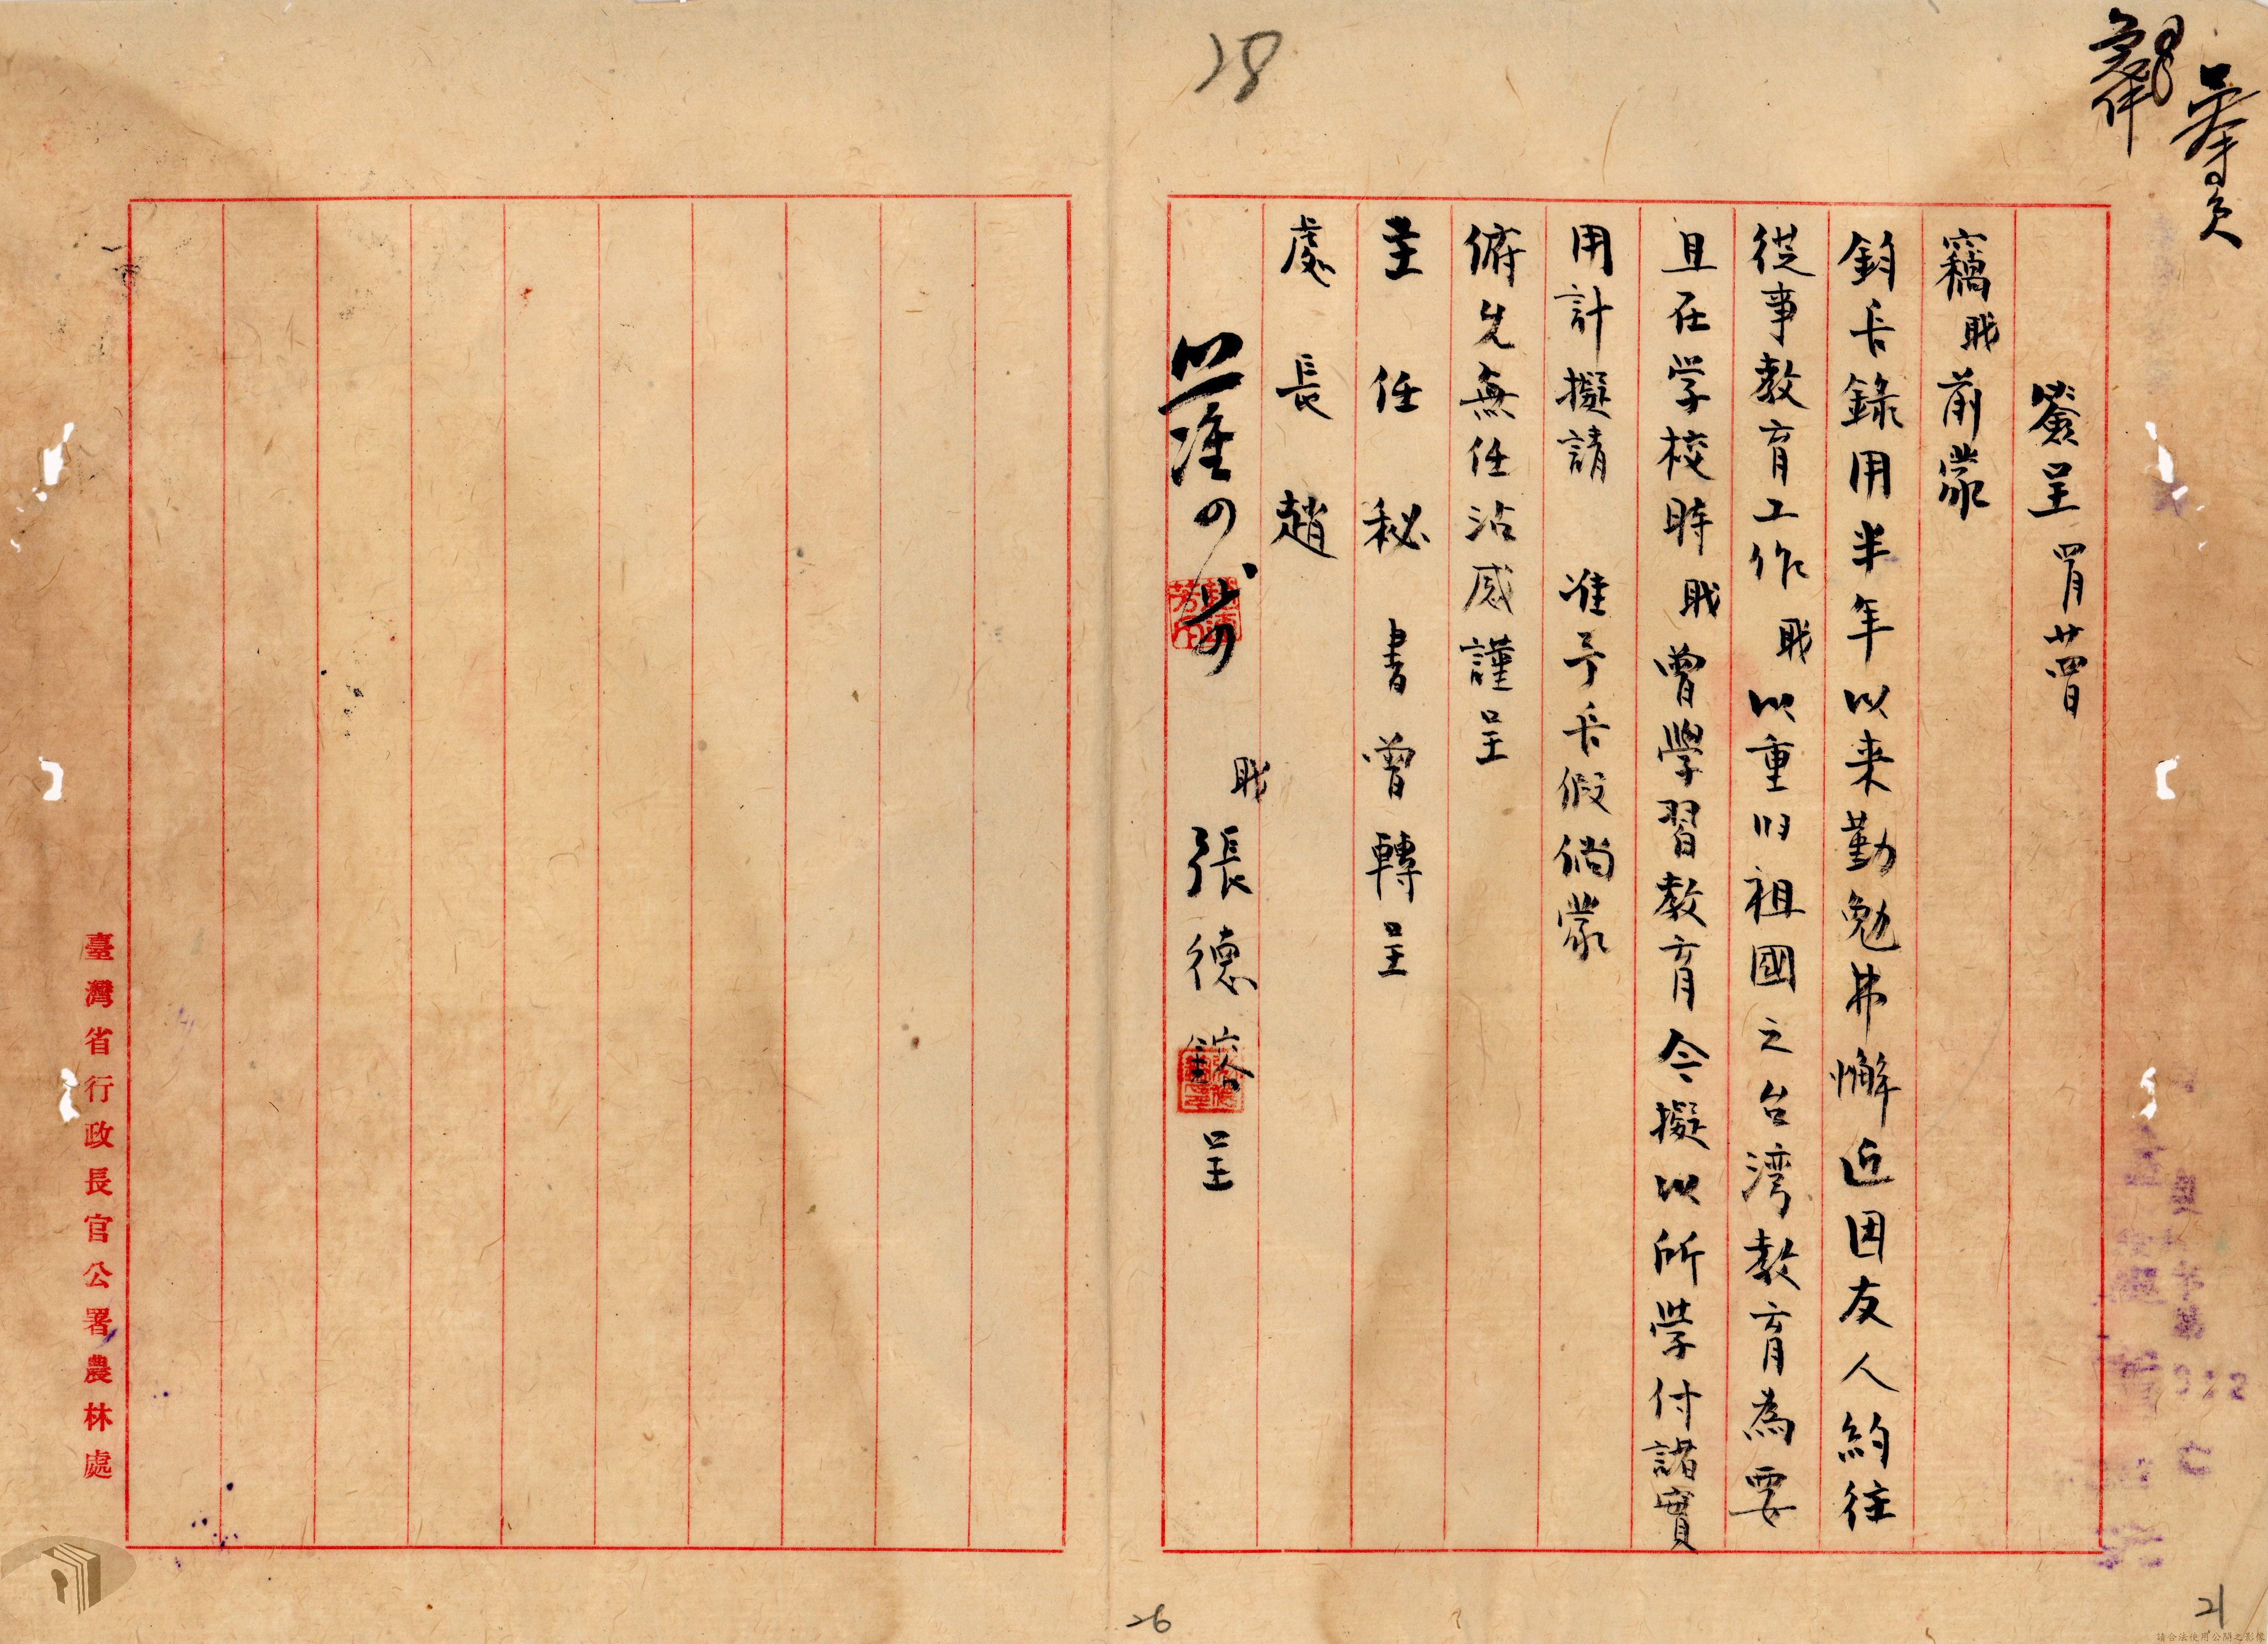 簽呈 四月廿四日
竊戝前蒙
鈞長錄用半年以来勤勉弗懈近因友人約往
從事教育工作戝以重归祖國之台湾教育為要
且在学校時戝曾學習教育今擬以所学付諸實
用計擬請 准予长假倘蒙
俯允無任沾感謹呈
主任秘書曾轉呈
處長趙
戝張德鎔呈
照准
臺灣省行政長官公署農林處
28
26
21
請合法使用公開之影像